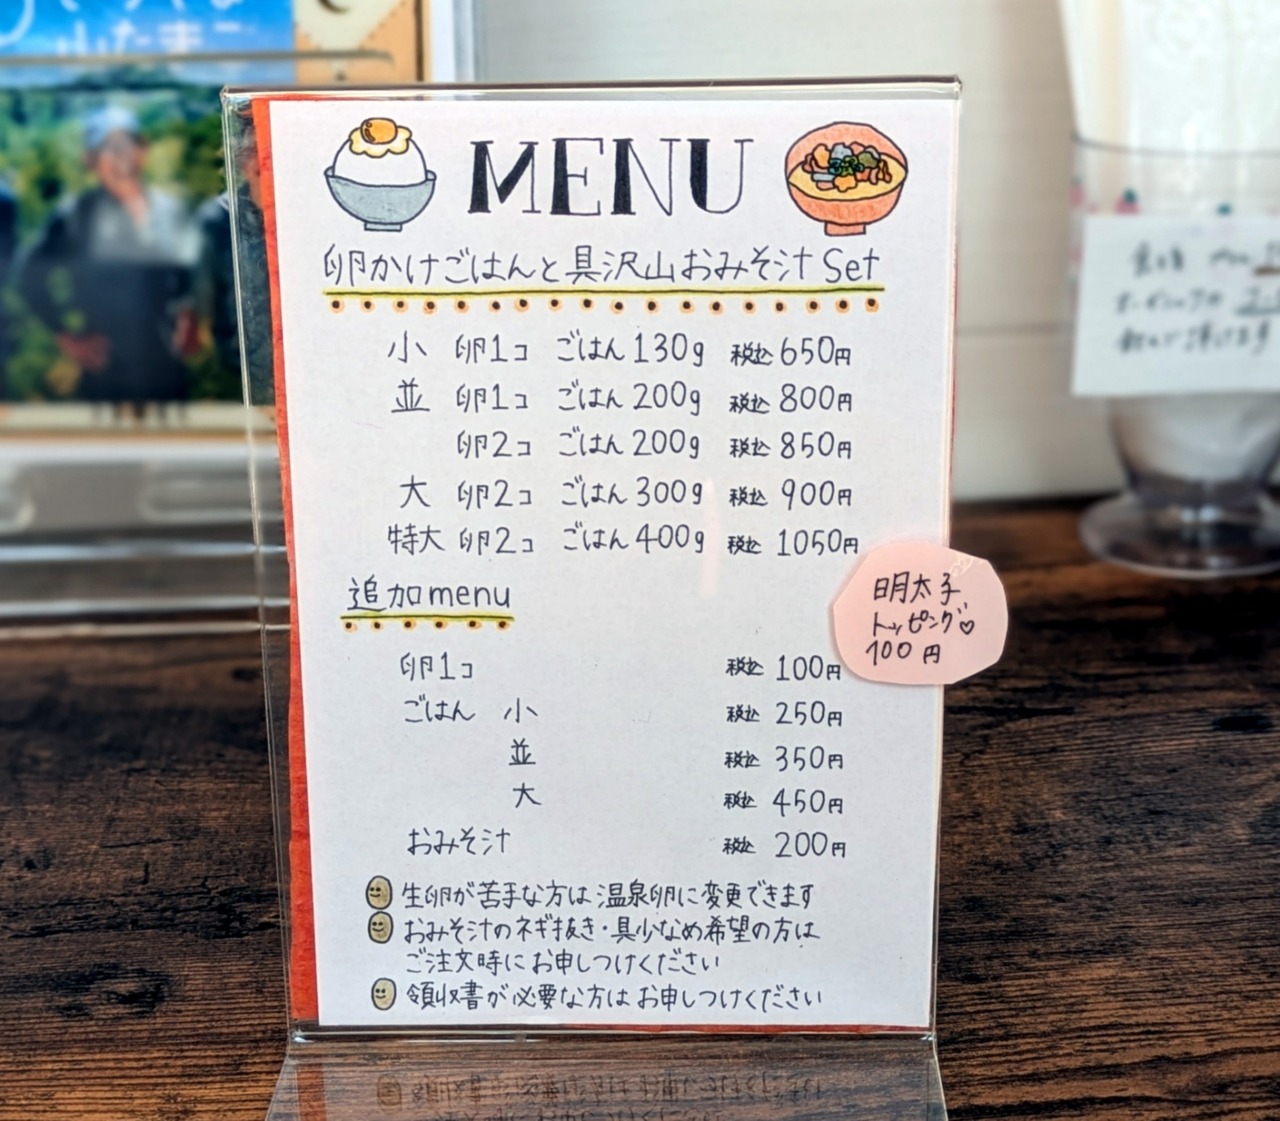 山たまご
MENU
卵かけごはんと具沢山おみそ汁 Set
小 卵1コ ごはん130g 税込650円
並 卵1コ ごはん200g 税込800円
卵2コ ごはん200g 税込850円
大 卵2コ ごはん300g 税込900円
特大 卵2コ ごはん400g 税込1050円
追加menu
卵1コ 税込100円
ごはん 小 税込250円
並 税込350円
大 税込450円
おみそ汁 税込200円
明太子
トッピング♡
100円
生卵が苦手な方は温泉卵に変更できます
おみそ汁のネギ抜き・具少なめ希望の方は
ご注文時にお申しつけください
領収書が必要な方はお申しつけください